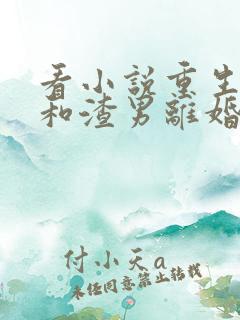 看小说重生
和渣男離婚
付小天a
未经同意禁止转载